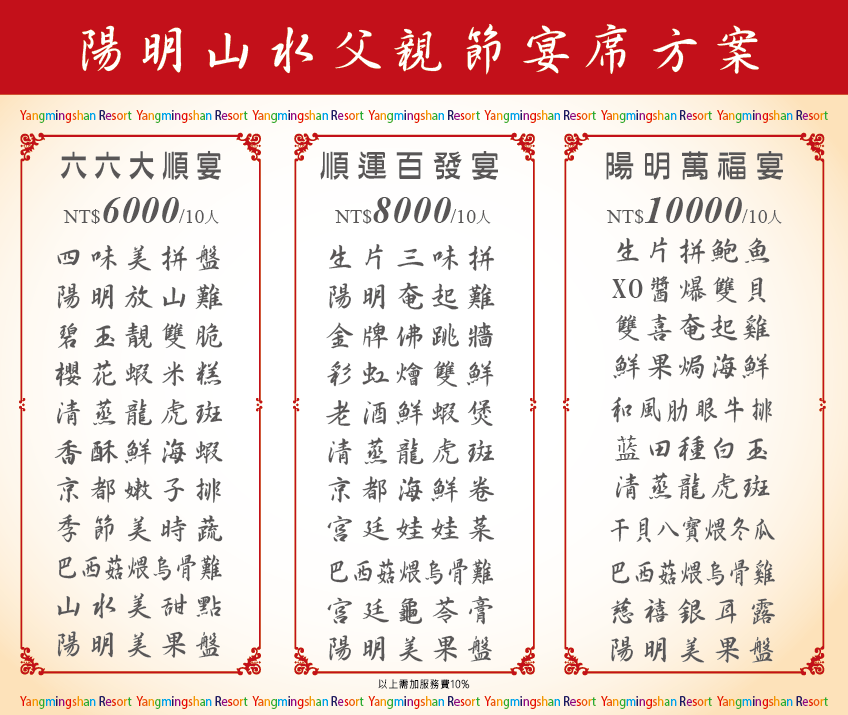 陽明山水父親節宴席方案
Yangmingshan Resort Yangmingshan Resort Yangmingshan Resort Yangmingshan Resort Yangmingshan Resort Yangmingshan Resort Yangmingshan Resort
六六大順宴
NT$6000/10人
四味美拼盤
陽明放山難
碧玉靚雙脆
櫻花蝦米糕
清蒸龍虎斑
香酥鮮海蝦
京都嫩子排
季節美時蔬
巴西菇煨烏骨難
山水美甜點
陽明美果盤
順運百發宴
NT$8000/10人
生片三味拼
陽明奄起難
金牌佛跳牆
彩虹燴雙鮮
老酒鮮蝦煲
清蒸龍虎斑
京都海鮮卷
宮廷娃娃菜
巴西菇煨烏骨難
宮廷龜苓膏
陽明美果盤
陽明萬福宴
NT$10000/10人
生片拼鮑魚
XO醬爆雙貝
雙喜奄起雞
鮮果焗海鮮
和風肋眼牛排
蓝田種白玉
清蒸龍虎斑
干貝八寶煨冬瓜
巴西菇煨烏骨雞
慈禧銀耳露
陽明美果盤
以上需加服務費10%
Yangmingshan Resort Yangmingshan Resort Yangmingshan Resort Yangmingshan Resort Yangmingshan Resort Yangmingshan Resort Yangmingshan Resort